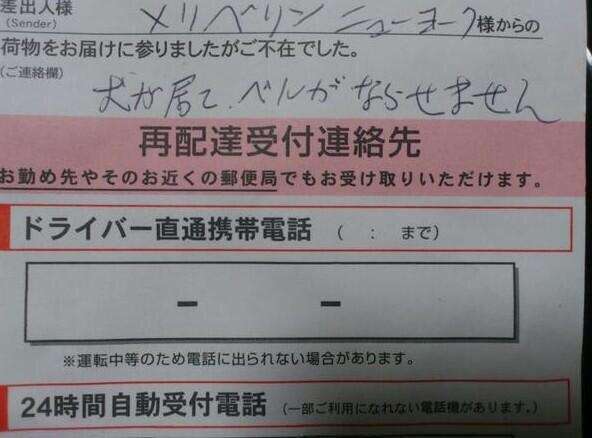 差出人様 メリベリンニューヨーク様からの
(Sender)
荷物をお届けに参りましたがご不在でした。
(ご連絡欄)
犬が居て、ベルがならせません
再配達受付連絡先
お勤め先やそのお近くの郵便局でもお受け取りいただけます。
ドライバー直通携帯電話 ( : まで)
- -
※運転中等のため電話に出られない場合があります。
24時間自動受付電話 (一部ご利用になれない電話機があります。)